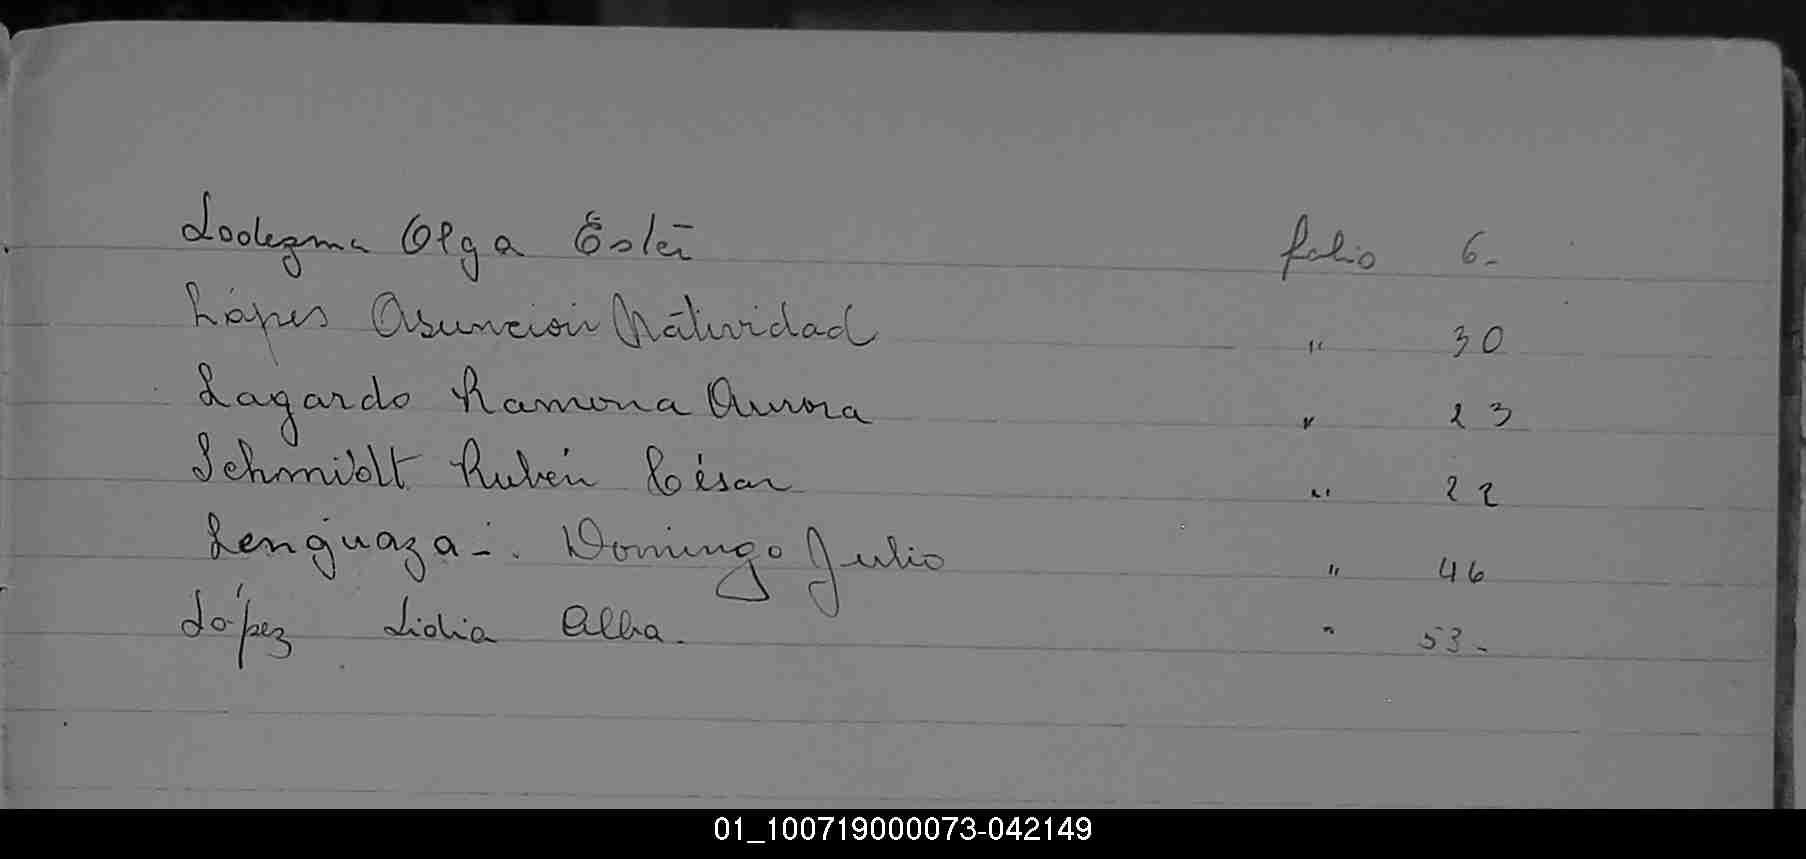 Lodezma Olga Ester folio 6-
Lópes Asuncion Natividad " 30
Lagardo Ramona Aurora " 23
Schmidlt Rubén César " 22
Lenguaza -. Domingo Julio " 46
López Lidia Alba. " 53-
01_100719000073-042149